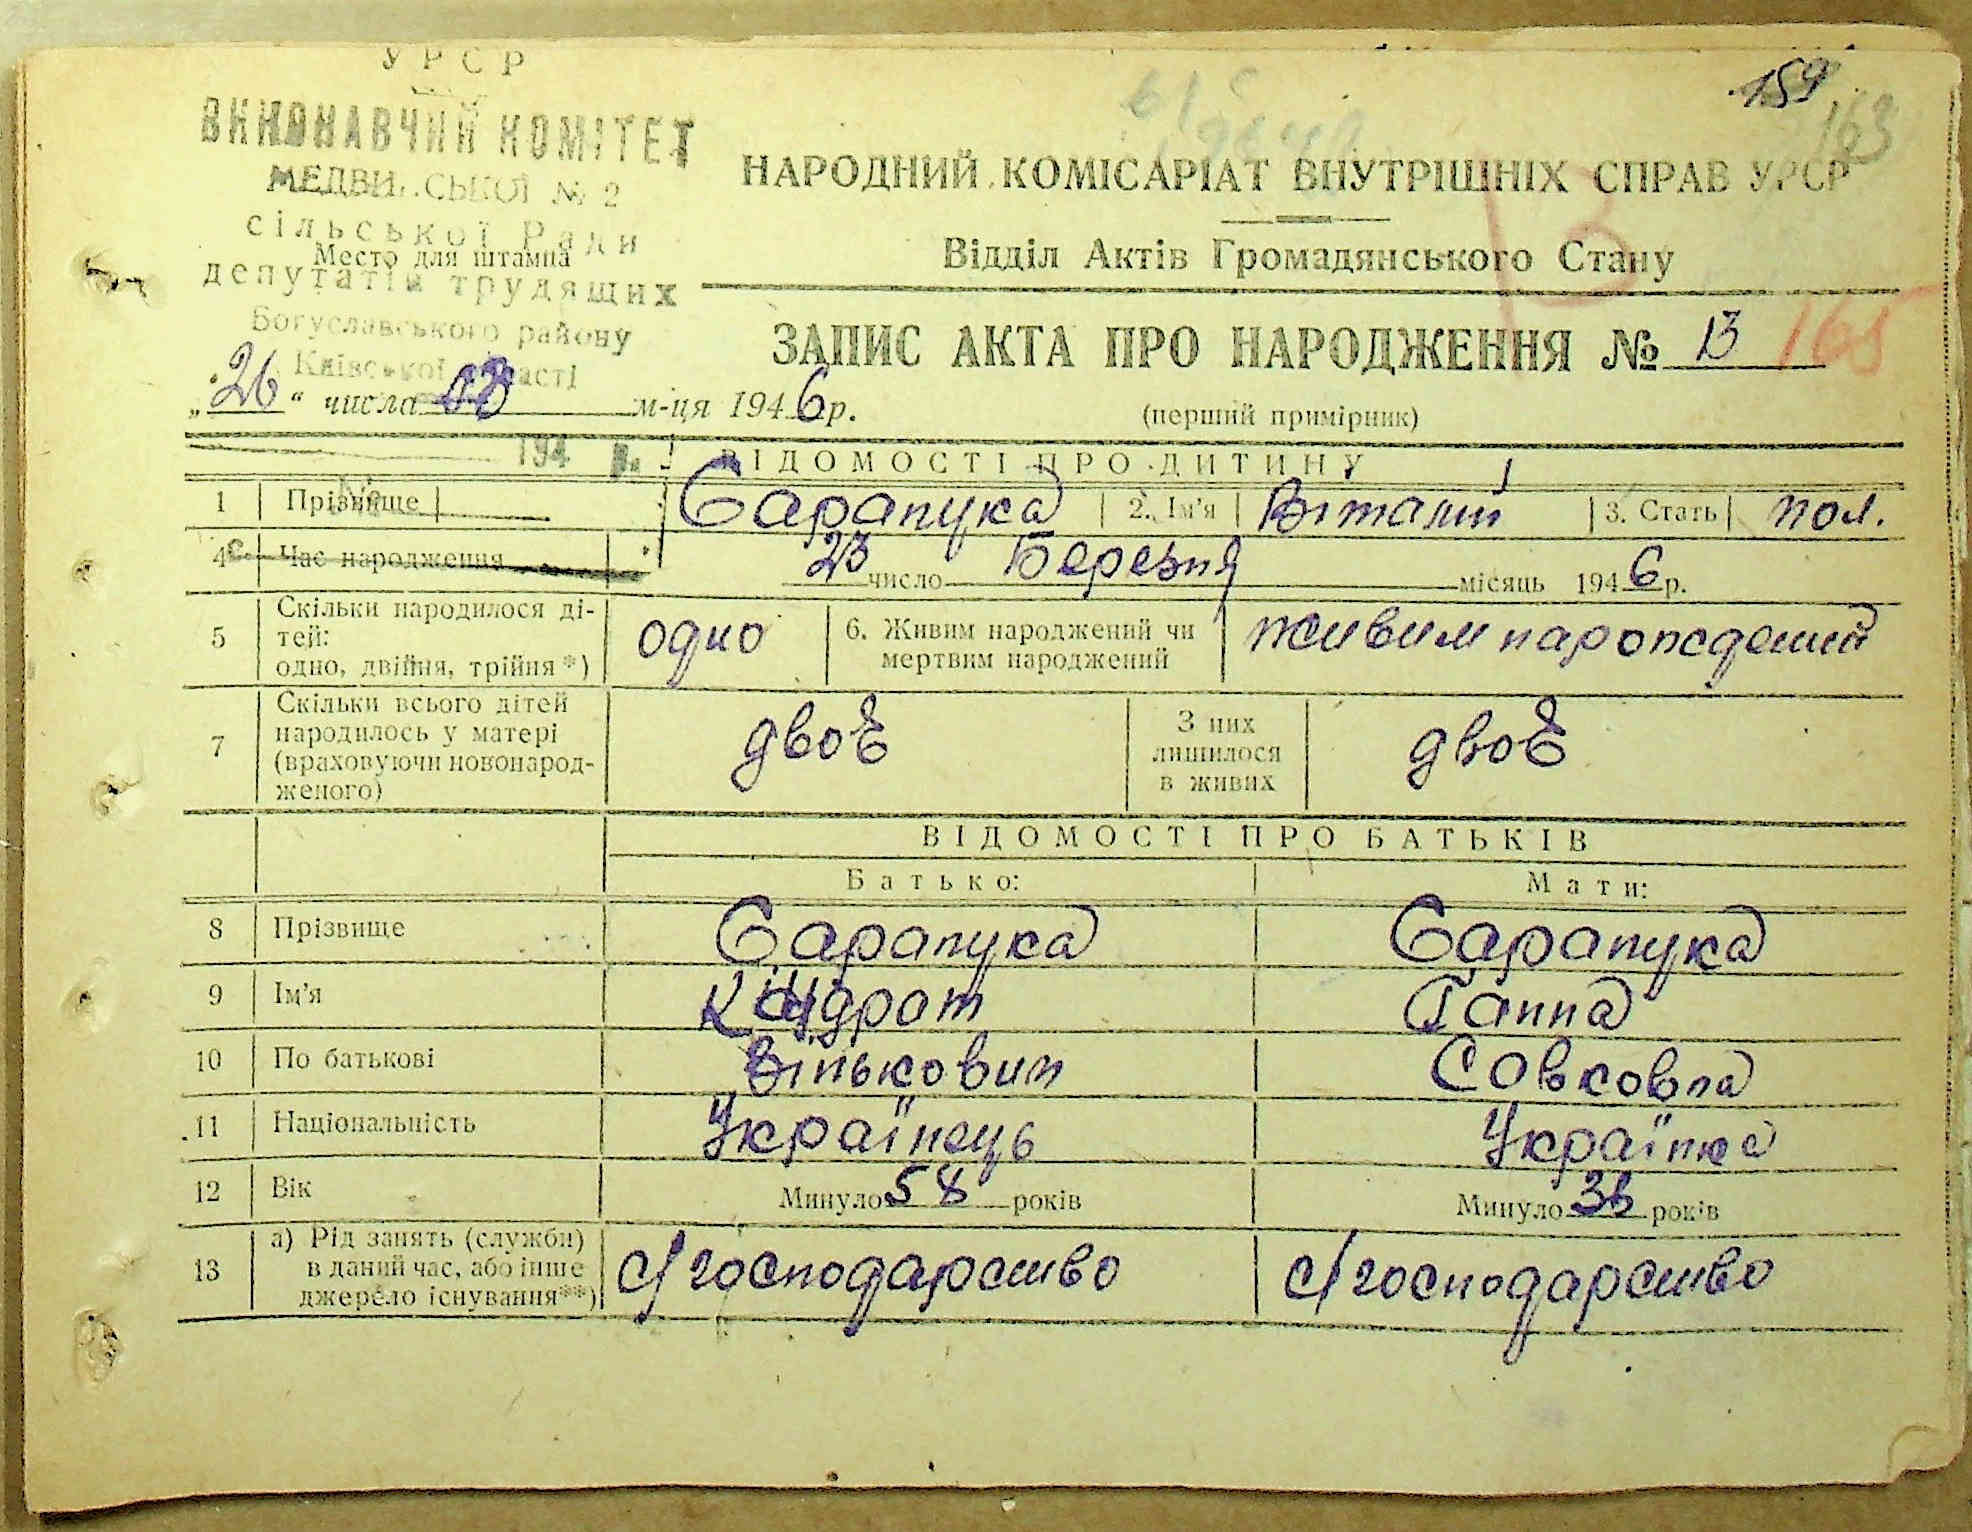 УРСР
ВИКОНАВЧИЙ КОМІТЕТ
СЬКОЇ № 2
сільської Ради
Место для штампа
депутатів трудящих
Богуславського району
Київської області
159
163
НАРОДНИЙ КОМІСАРІАТ ВНУТРІШНІХ СПРАВ УРСР
Відділ Актів Громадянського Стану
13
ЗАПИС АКТА ПРО НАРОДЖЕННЯ № 13 165
„26" числа 03 м-ця 1946 р.
(перший примірник)
194 р.
ВІДОМОСТІ ПРО ДИТИНУ
1 Прізвище Сарапука 2. Ім'я Віталий 3. Стать чол.
4 Час народження 23 число Березня місяць 1946 р.
5 Скільки народилося ді-
тей:
одно, двійня, трійня*) одно 6. Живим народжений чи
мертвим народжений живим народжений
7 Скільки всього дітей
народилось у матері
(враховуючи новонарод-
женого) двоє З них
лишилося
в живих двоє
ВІДОМОСТІ ПРО БАТЬКІВ
Батько: Мати:
8 Прізвище Сарапука Сарапука
9 Ім'я Кіндрот Ганна
10 По батькові Вінькович Совковна
11 Національність Українець Українка
12 Вік Минуло 58 років Минуло років
13 а) Рід занять (служби)
в даний час, або інше
джерело існування**) с/господарство с/господарство